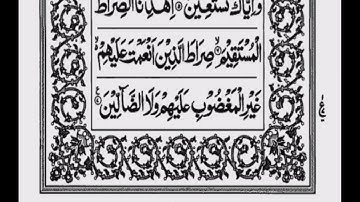 وَاِيَّاكَ نَسْتَعِيْنُ ۞ اِهْدِنَا الصِّرَاطَ
الْمُسْتَقِيْمَ ۞ صِرَاطَ الَّذِيْنَ اَنْعَمْتَ عَلَيْهِمْ ۙ
غَيْرِ الْمَغْضُوْبِ عَلَيْهِمْ وَلَا الضَّآلِّيْنَ ۞